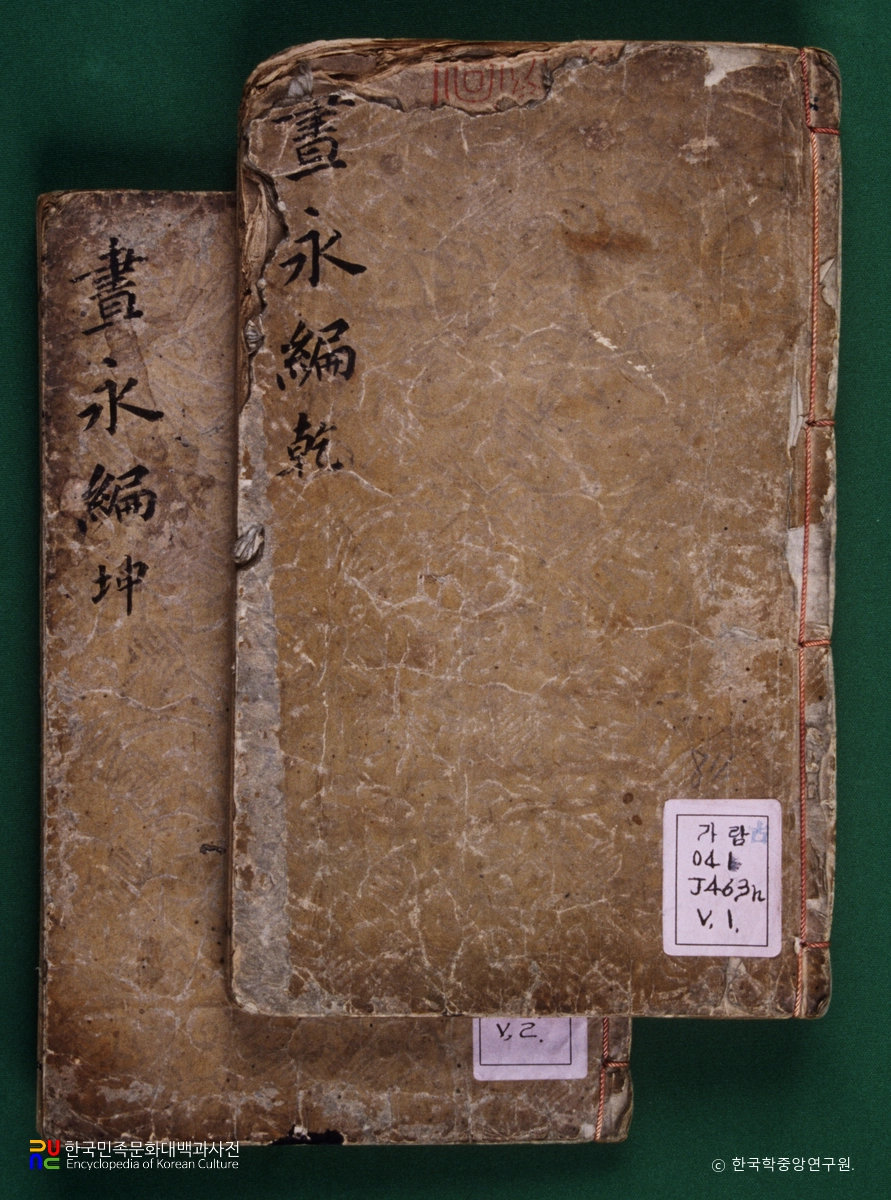 晝永編 乾
晝永編 坤
가람 古
041
J463n
V. 1.
V. 2.
한국민족문화대백과사전
Encyclopedia of Korean Culture
© 한국학중앙연구원.